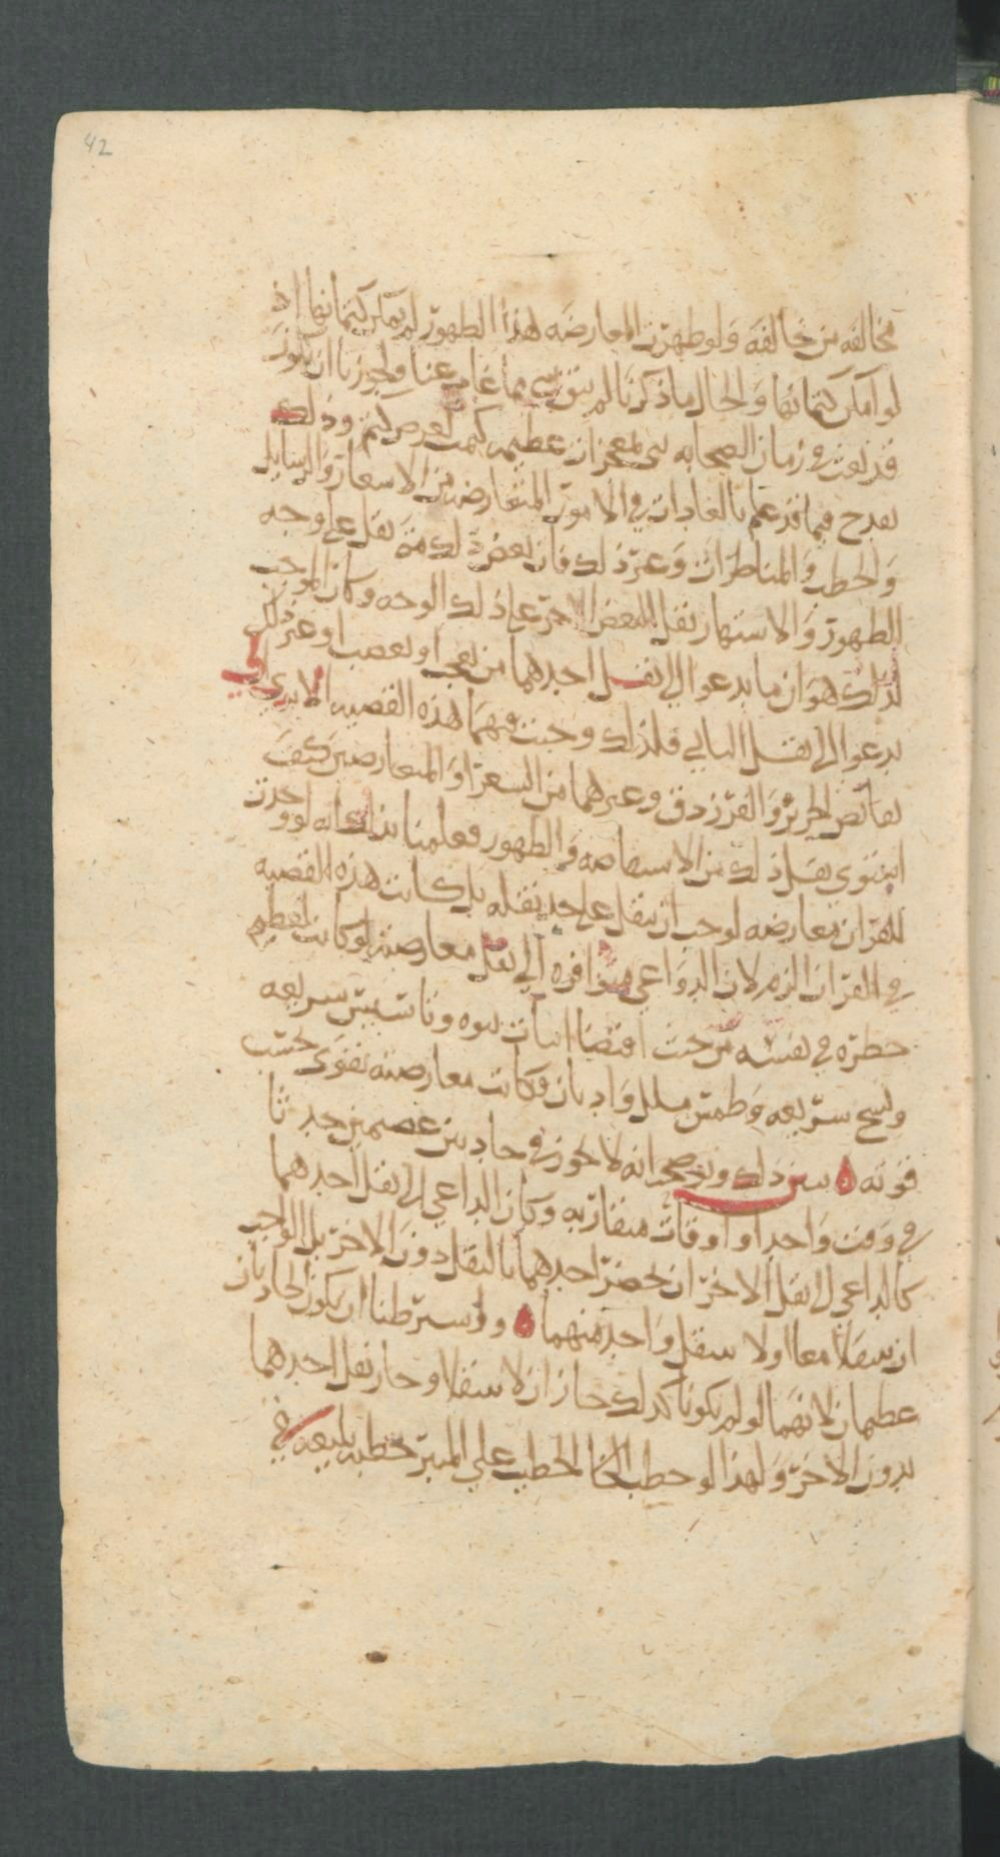 42
مخالفه من خالفه ولو ظهرت المعارضه هذا الظهور لم يمكن كتمانها اذ
لو امكن كتمانها والحال ما ذكرنا لم نثق بشي مما غاب عنا ولجوزنا ان يكون
قد بعث في زمان الصحابه نبي بمعجزات عظيمه كتمت لغرض لهم وذلك
يقدح فيما قد علم بالعادات في الامور المتعارضه من الاشعار والرسايل
والخطب والمناظرات وغير ذلك فان بعض ذلك متى نقل على وجه
الظهور والاشتهار نقل البعض الاخر على ذلك الوجه وكان الموجب
لذلك هو ان ما يدعوا الى نقل احدهما من تعجب او تعصب او غير ذلك
يدعوا الى نقل الثاني فلذلك وجبت فيهما هذه القضيه الا ترى الى
نقائض جرير والفرزدق وغيرهما من الشعرا والمتعارضين كيف
استوى نقل ذلك من الاستفاضه والظهور فعلمنا بذلك انه لو وجدت
للقران معارضه لوجب ان تنقل على حد نقله بل كانت هذه القضيه
في القران الزم لان الدواعي متوافره الى نقل معارضته لو كانت لعظيم
خطره في نفسه من حيث اقتضا اثبات نبوه وتاسيس شريعه
ونسخ شريعه وطمس ملل واديان فكانت معارضته تقوى بحسب
قوته يبين ذلك ويوضحه انه لا يجوز في حادثين عظيمين حدثا
في وقت واحد او اوقات متقاربه وكان الداعي الى نقل احدهما
كالداعي الى نقل الاخر ان يختص احدهما بالنقل دون الاخر بل الواجب
ان ينقلا معا او لا ينقل واحد منهما وشرطنا ان يكون الحادثان
عظيمان لانهما لو لم يكونا كذلك جاز ان لا ينقلا وجاز نقل احدهما
بدون الاخر ولهذا لو خطب الخطيب على المنبر خطبه بليغه في